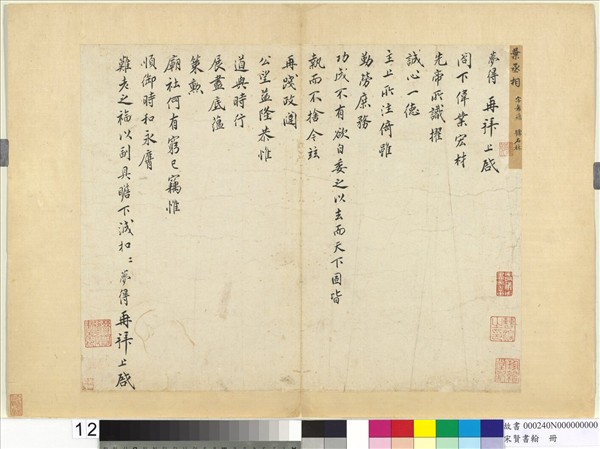 葉丞相
夢得再拜上啟
閤下偉業宏材
先帝所識擢
誠心一德
主上所注倚雖
勤勞庶務
功成不有欲自委之以去而天下國皆
執而不捨今茲
再踐政閣
公望益隆恭惟
道與時行
展盡底蘊
策勲
廟社何有窮已竊惟
順御時和永膺
難老之福以副具瞻下誠扣扣夢得再拜上啟
12
故書 000240N000000000
宋賢書翰 冊